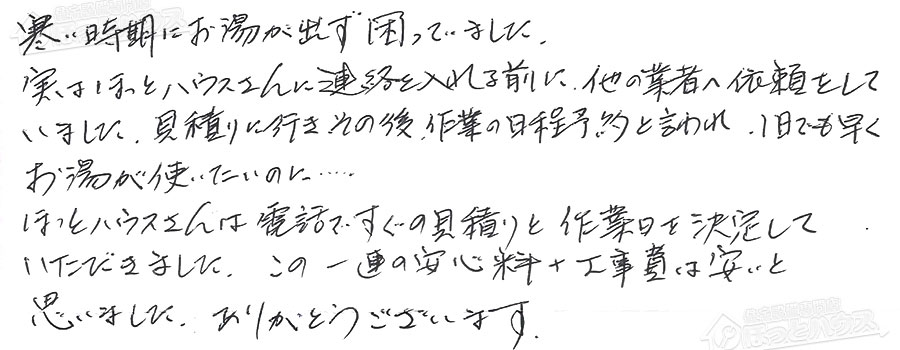 寒い時期にお湯が出ず困っていました.
実はほっとハウスさんに連絡を入れる前に、他の業者へ依頼をして
いました、見積りに行きその後、作業の日程予約と言われ、1日でも早く
お湯が使いたいのに……
ほっとハウスさんは電話ですぐの見積りと作業日を決定して
いただきました、この一連の安心料+工事費は安いと
思いました、ありがとうございます.
ほっとハウス